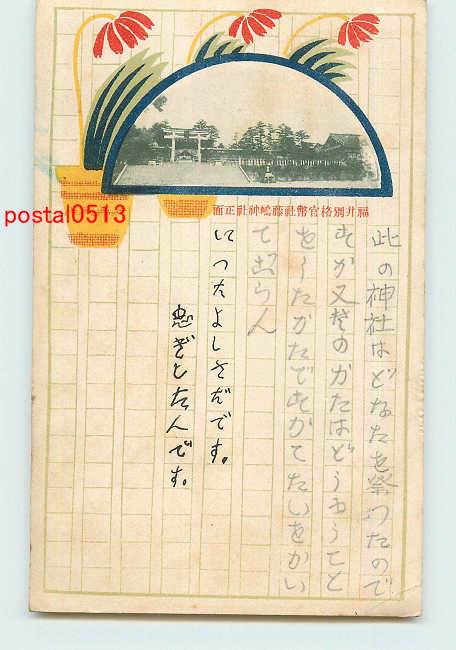 postal0513
福井別格官幣社藤嶋神社正面
此の神社はどなたを祭つたので
すか又そのかたはどうゆうこと
をしたかたですかてたいをかい
て出らん
につたよしさだです。
忠ぎとたんです。